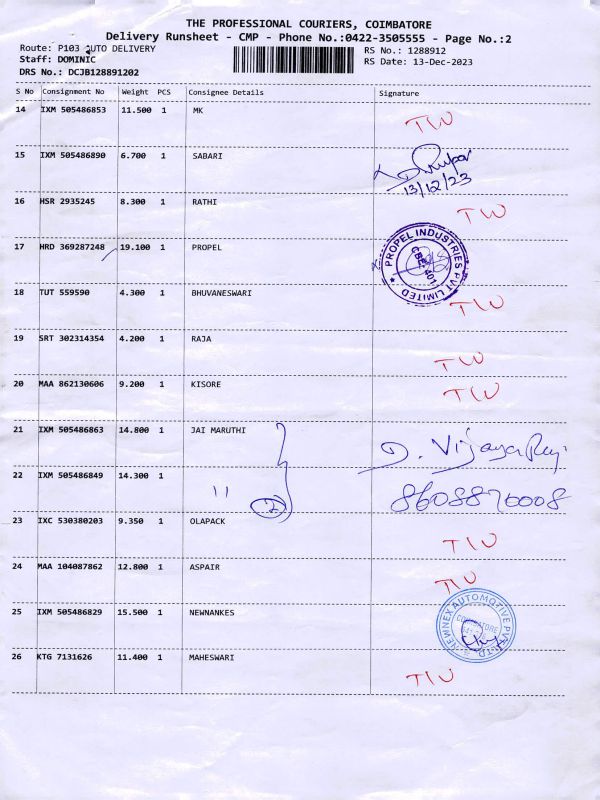 THE PROFESSIONAL COURIERS, COIMBATORE
Delivery Runsheet - CMP - Phone No.:0422-3505555 - Page No.:2
Route: P103 AUTO DELIVERY RS No.: 1288912
Staff: DOMINIC RS Date: 13-Dec-2023
DRS No.: DCJB128891202
S No Consignment No Weight PCS Consignee Details Signature
14 IXM 505486853 11.500 1 MK TW
15 IXM 505486890 6.700 1 SABARI
13/12/23
16 HSR 2935245 8.300 1 RATHI TW
17 HRD 369287248 19.100 1 PROPEL PROPEL INDUSTRIES PVT LIMITED
18 TUT 559590 4.300 1 BHUVANESWARI TW
19 SRT 302314354 4.200 1 RAJA TW
20 MAA 862130606 9.200 1 KISORE TW
21 IXM 505486863 14.800 1 JAI MARUTHI D. Vijaya
22 IXM 505486849 14.300 1 11 2 8608870008
23 IXC 530380203 9.350 1 OLAPACK TW
24 MAA 104087862 12.800 1 ASPAIR TW
25 IXM 505486829 15.500 1 NEWNANKES NEWNEX AUTOMOTIVE PVT LTD COIMBATORE
26 KTG 7131626 11.400 1 MAHESWARI TW